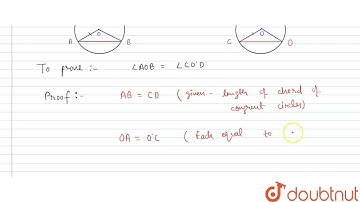 O
O'
A
B
C
D
To prove :- ∠AOB = ∠CO'D
Proof :- AB = CD (given - length of chord of
congruent circles)
OA = O'C (Each equal to
doubtnut